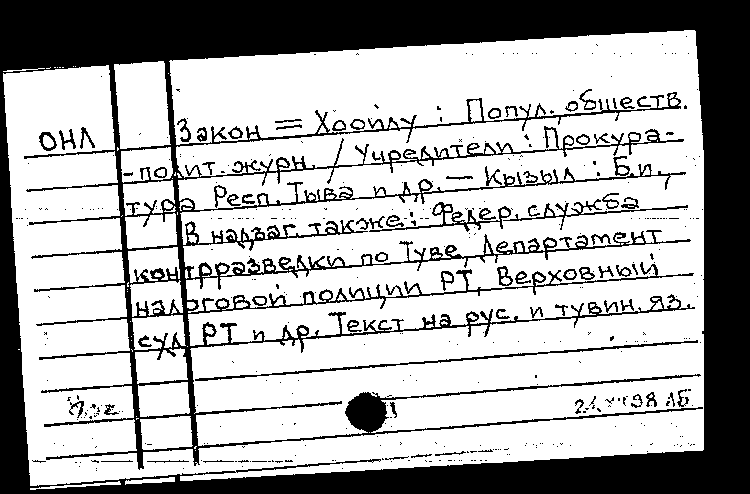 ОНЛ
Закон = Хоойлу : Попул. обществ.
-полит. журн. / Учредители : Прокура-
тура Респ. Тыва и др. — Кызыл : Б.и.,
В надзаг. также: Федер. служба
контрразведки по Туве, Департамент
налоговой полиции РТ, Верховный
суд РТ и др. Текст на рус. и тувин. яз.
98 АБ